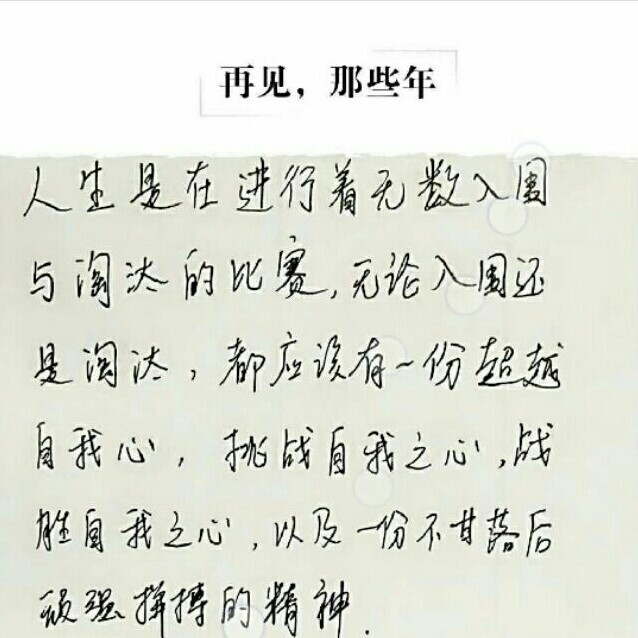 再见，那些年
人生是在进行着无数入围
与淘汰的比赛,无论入围还
是淘汰，都应该有一份超越
自我心，挑战自我之心,战
胜自我之心,以及一份不甘落后
顽强拼搏的精神.